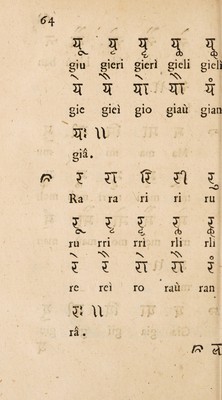 64
यू यृ यॄ यॢ यॣ
giu gieri gierì gieli gielì
ये यै यो यौ यं
gie gieì gio giaù gian
यः ॥
giâ.
र रा रि री रु
Ra ra ri ri ru
रू रृ रॄ रॢ रॣ
ru rri rrì rli rlì
रे रै रो रौ रं
re reì ro raù ran
रः ॥
râ.
ल